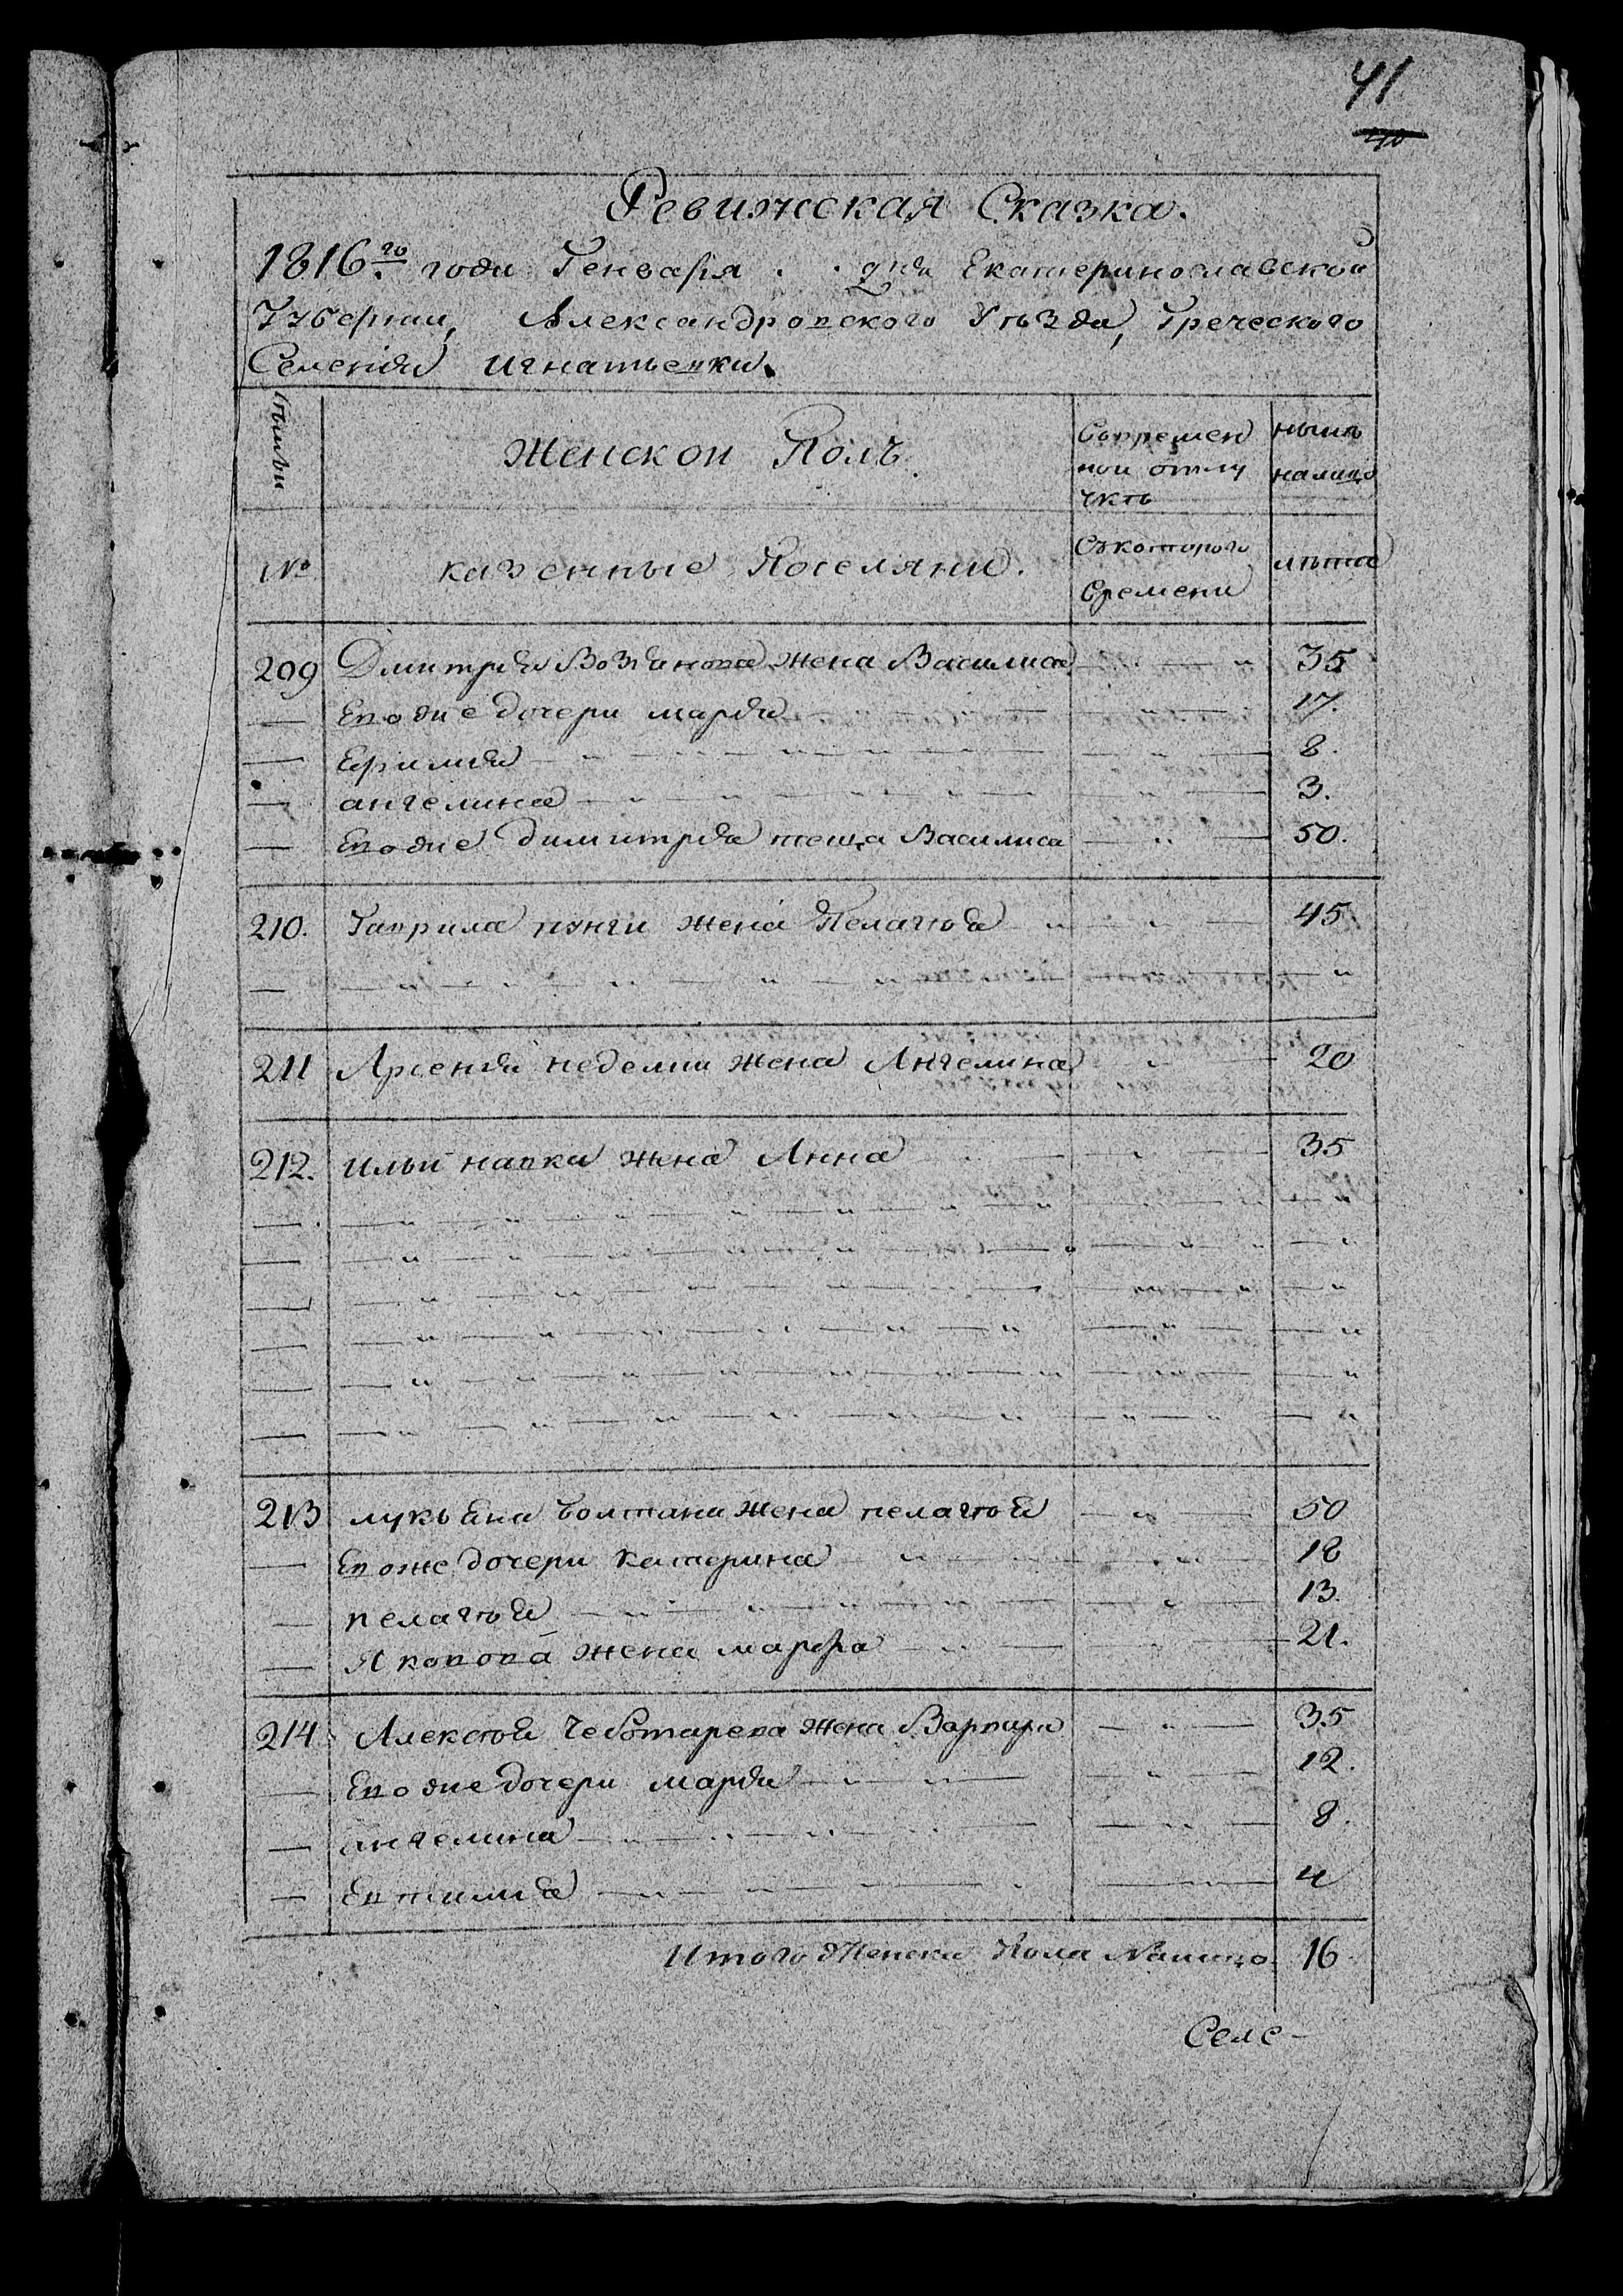 41
40
Ревижская Сказка.
1816го года Генваря . . дня Екатеринославской
Губернии, Александровского Уезда, Греческого
Селения Игнатьевки.
Женской Полъ.
Вовремен
ной отлу
чкѣ
нынѣ
налицо
№
казенные Поселяне.
Съ которого
времени
лѣта
209 Дмитрия Возіанова жена Василиса 35
— Евоже дочери мария 17.
— Ефимия 8.
— ангелина 3.
— Евоже димитрия теща Василиса 50.
210. Гаврила пунги жена Пелагѣя 45
211 Арсения неделки жена Ангелина 20
212. ильи навки жена Анна 35
213 лукьяна болтана жена пелагѣя 50
— Евоже дочери Катерина 18
— пелагѣя 13.
— Яковова жена марфа 21.
214 Алексѣя Чеботарева жена Варвара 35
— Евоже дочери мария 12.
— ангелина 8.
— Евтимия 4
Итого Женска Пола Налицо 16
Селе-